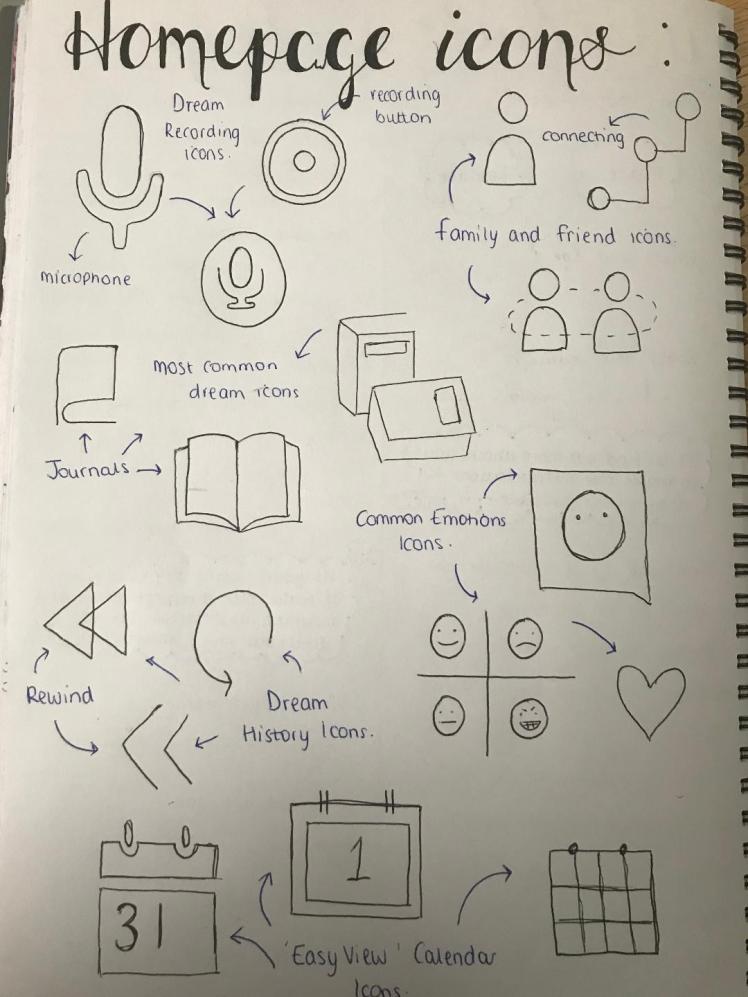 Homepage icons :
Dream
Recording
icons.
recording
button
microphone
connecting
family and friend icons.
most common
dream icons
Journals
Common Emotions
Icons.
Rewind
Dream
History Icons.
31
1
'Easy View' Calendar
Icons.